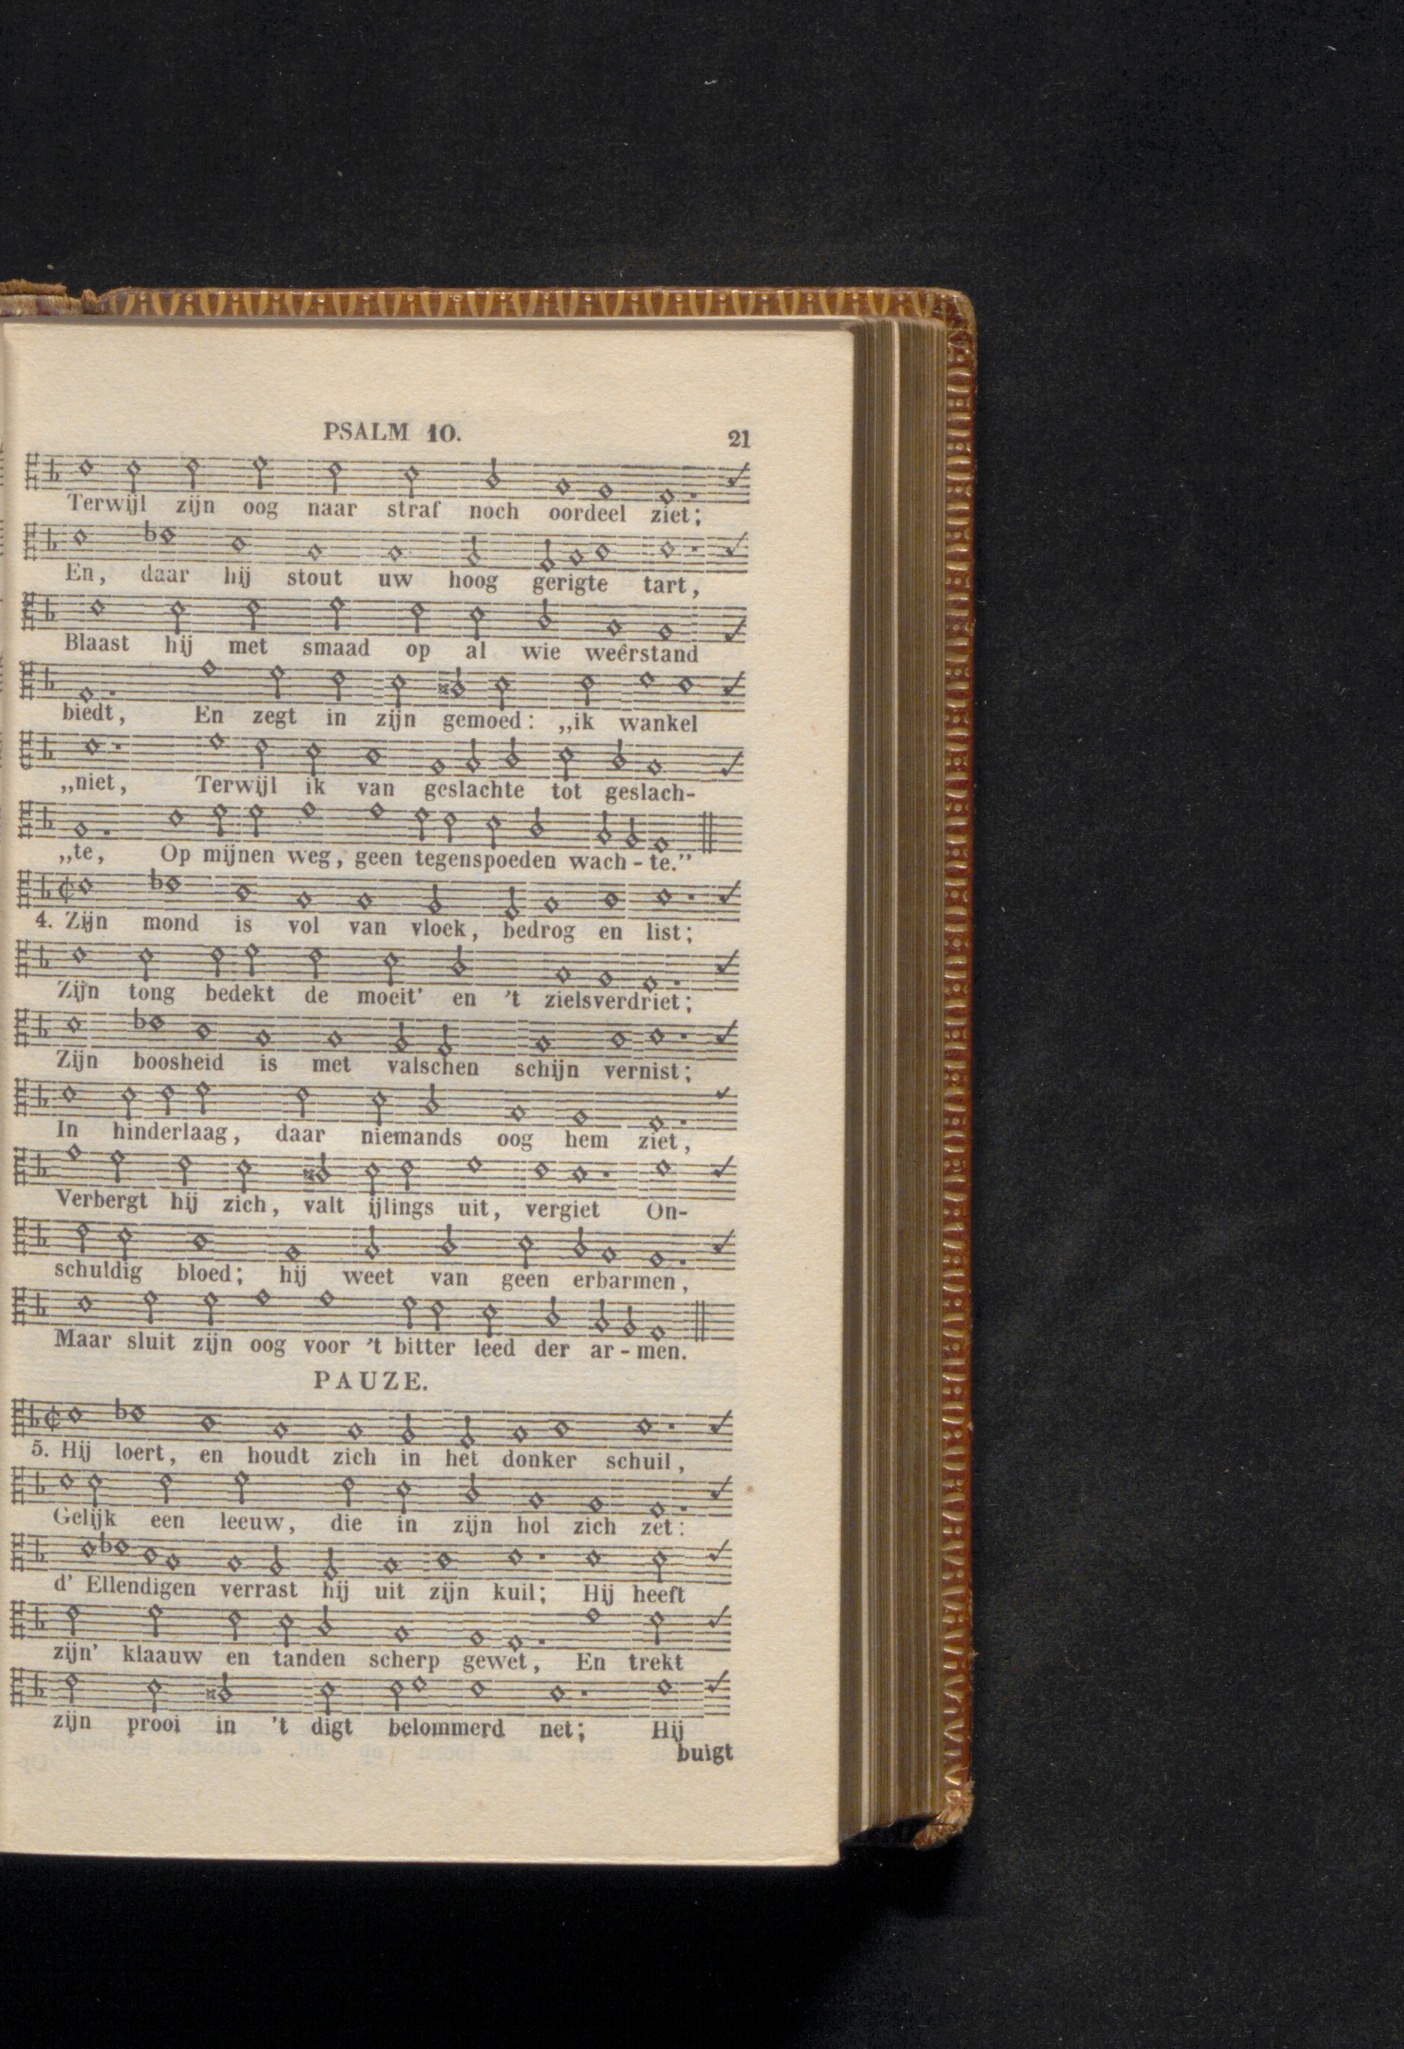 PSALM 10. 21
Terwijl zijn oog naar straf noch oordeel ziet;
En, daar hij stout uw hoog gerigte tart,
Blaast hij met smaad op al wie weêrstand
biedt, En zegt in zijn gemoed: „ik wankel
„niet, Terwijl ik van geslachte tot geslach-
„te, Op mijnen weg, geen tegenspoeden wach-te.”
4. Zijn mond is vol van vloek, bedrog en list;
Zijn tong bedekt de moeit' en 't zielsverdriet;
Zijn boosheid is met valschen schijn vernist;
In hinderlaag, daar niemands oog hem ziet,
Verbergt hij zich, valt ijlings uit, vergiet On-
schuldig bloed; hij weet van geen erbarmen,
Maar sluit zijn oog voor 't bitter leed der ar-men.
PAUZE.
5. Hij loert, en houdt zich in het donker schuil,
Gelijk een leeuw, die in zijn hol zich zet:
d' Ellendigen verrast hij uit zijn kuil; Hij heeft
zijn' klaauw en tanden scherp gewet, En trekt
zijn prooi in 't digt belommerd net; Hij
buigt